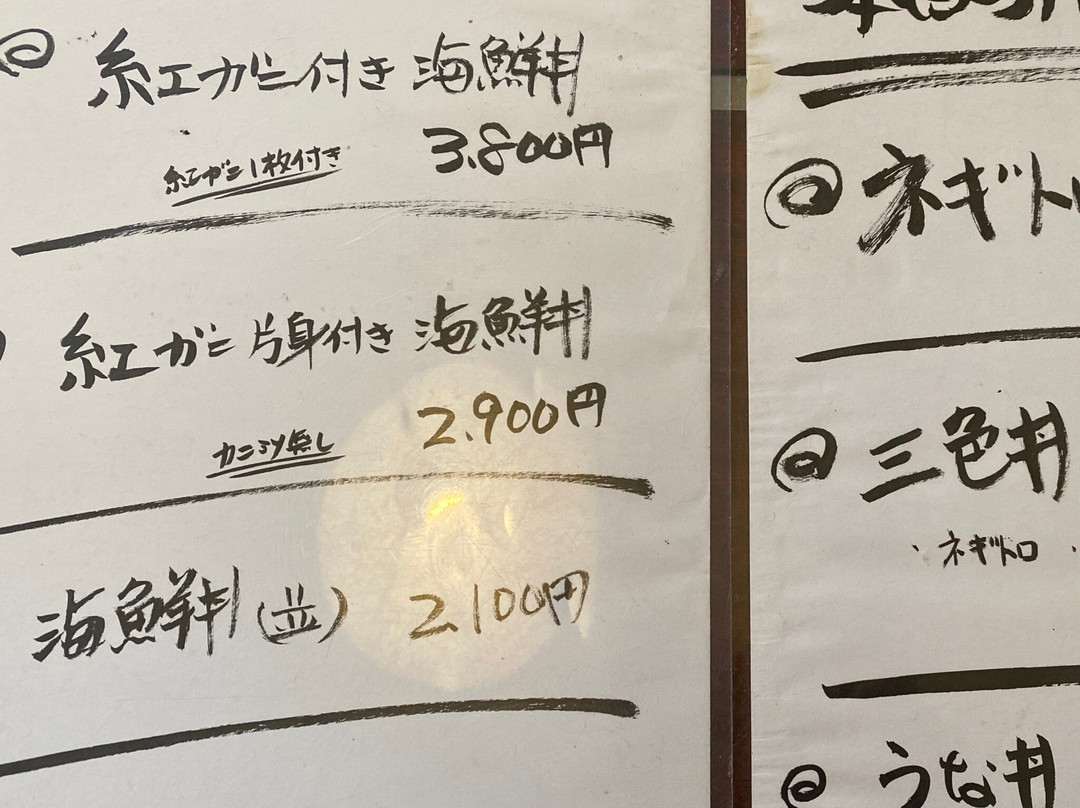 紅エガニ付き 海鮮丼
3.800円
紅ガニ1枚付き
紅エガニ片身付き 海鮮丼
2.900円
カニミソ無し
海鮮丼(並) 2.100円
ネギト
三色丼
・ネギトロ ・
うな丼